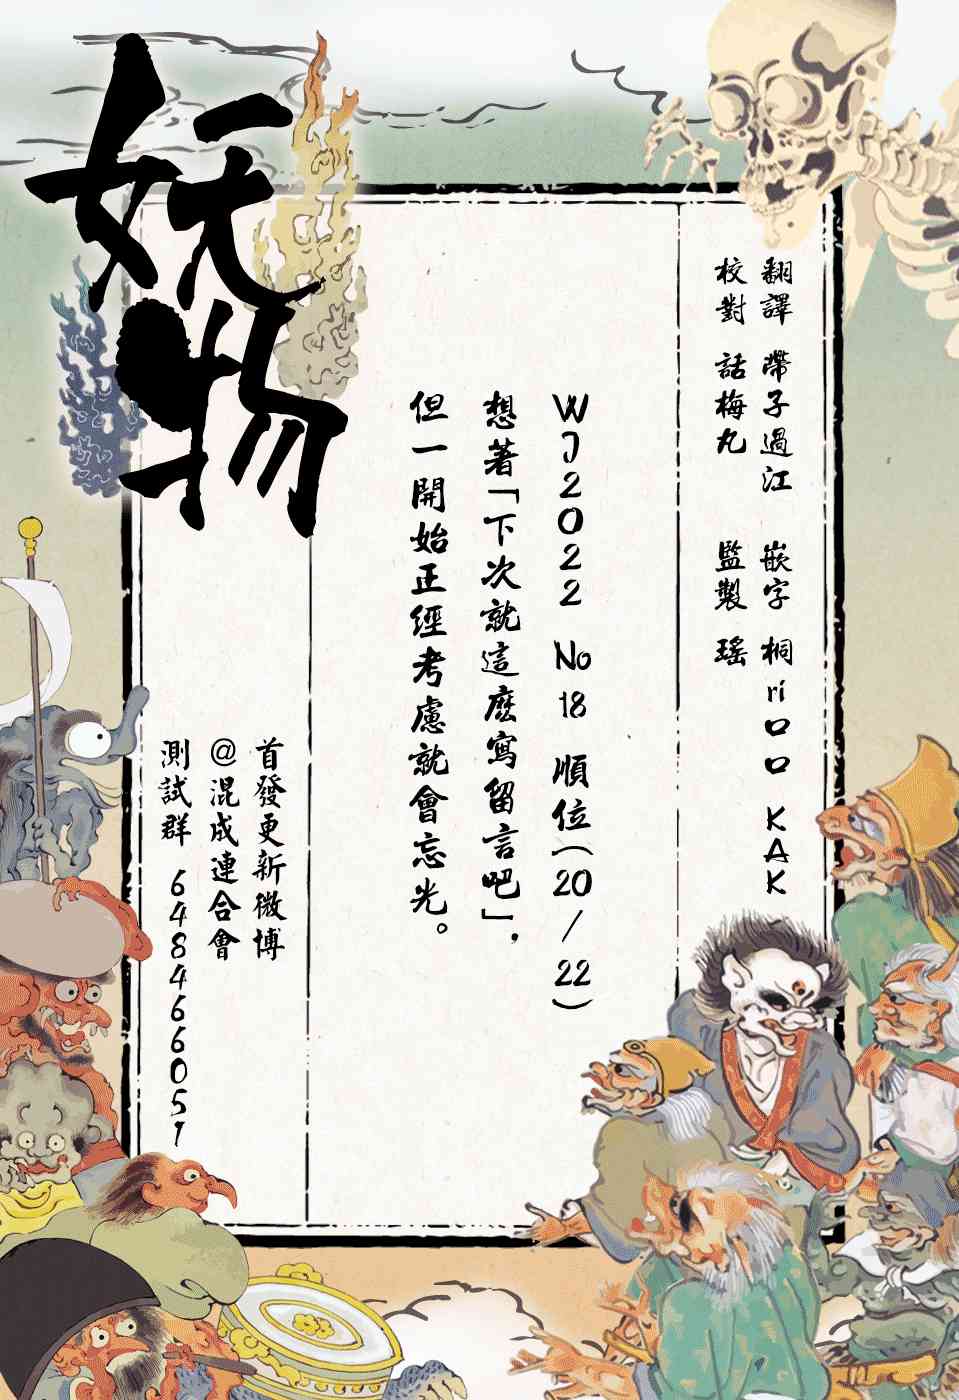 妖物
翻譯 帶子過江 嵌字 桐riロロ KAK
校對 話梅丸 監製 瑤
WJ2022 No18 順位(20/22)
想著「下次就這麼寫留言吧」,
但一開始正經考慮就會忘光。
首發更新微博
@混成連合會
測試群 648466051